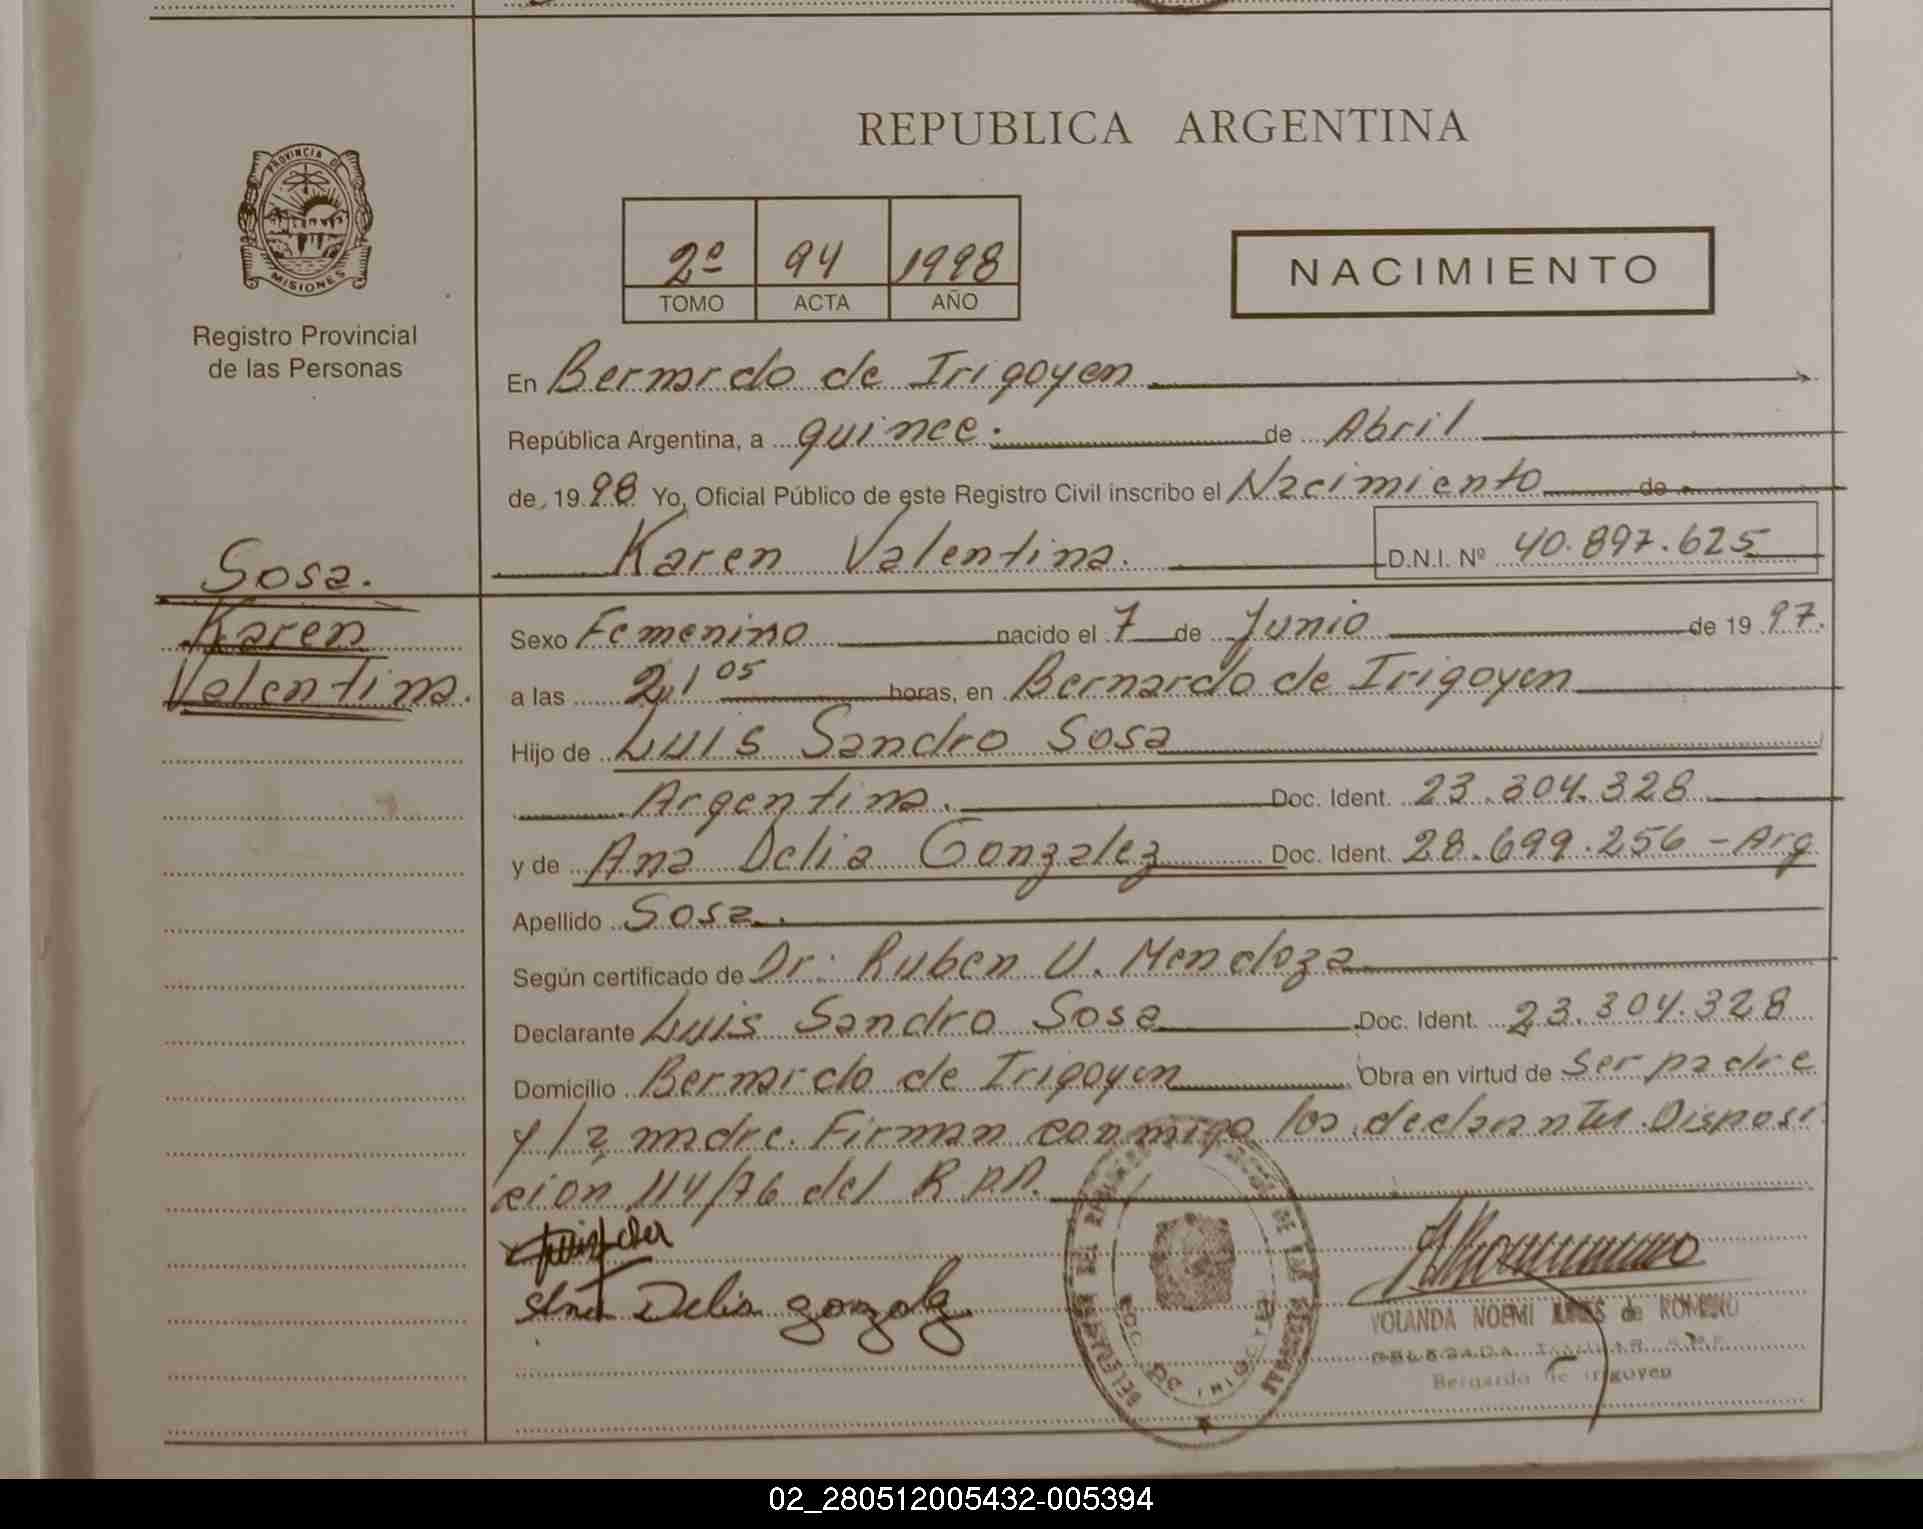 REPUBLICA ARGENTINA
PROVINCIA DE
MISIONES
Registro Provincial
de las Personas
2º 94 1998
TOMO ACTA AÑO
NACIMIENTO
En Bernardo de Irigoyen
República Argentina, a quince. de Abril
de 1998 Yo, Oficial Público de este Registro Civil inscribo el Nacimiento de
Karen Valentina. D.N.I. Nº 40.897.625
Sosa.
Karen
Valentina.
Sexo Femenino nacido el 7 de Junio de 1997.
a las 21 05 horas, en Bernardo de Irigoyen
Hijo de Luis Sandro Sosa
Argentina. Doc. Ident. 23.304.328
y de Ana Delia Gonzalez Doc. Ident. 28.699.256 - Arg
Apellido Sosa.
Según certificado de Dr. Ruben U. Mendoza
Declarante Luis Sandro Sosa Doc. Ident. 23.304.328
Domicilio Bernardo de Irigoyen Obra en virtud de Ser padre
y la madre. Firman conmigo los declarantes. Disposi
cion 114/76 del R.P.P.
Ana Delia gonzalez
YOLANDA NOEMI de ROMERO
Bernardo de Irigoyen
02_280512005432-005394